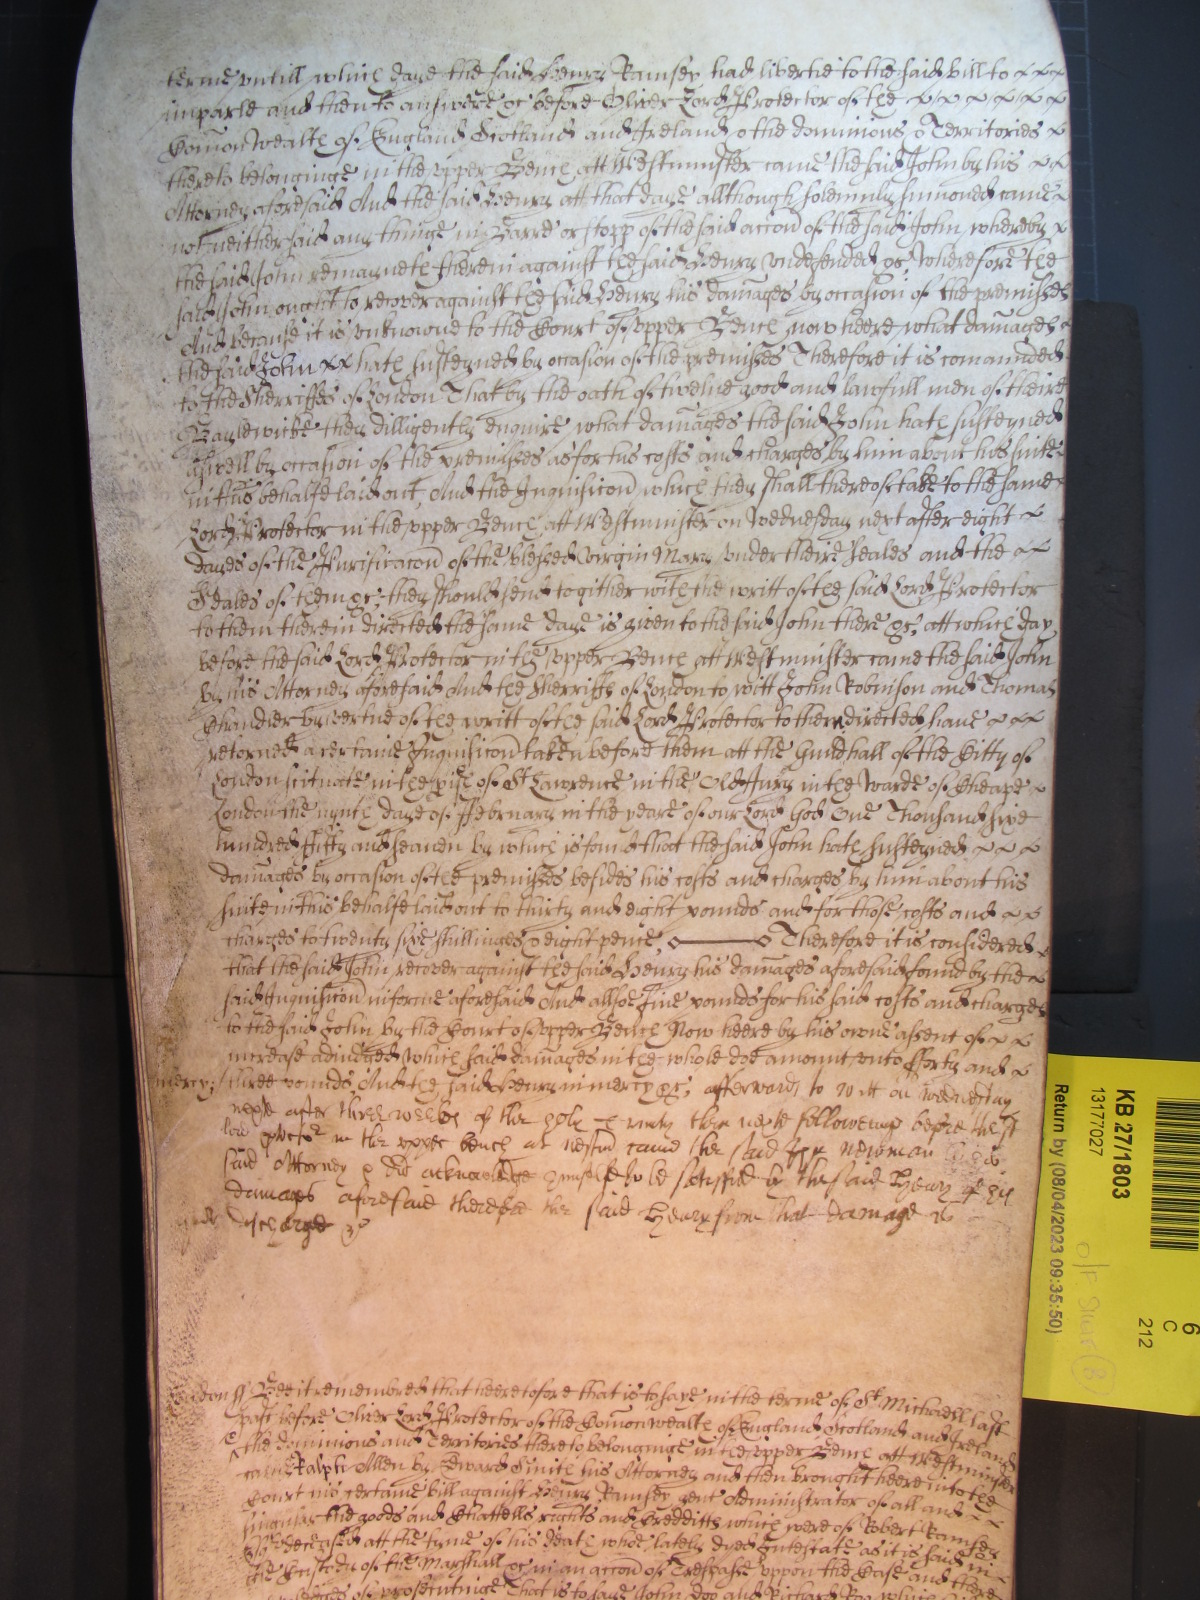 terme vntill which daye the said Henry Ramsey had libertie to the said bill to
imparle and then to answere &c before Oliver Lord Protector of the
Comon Wealth of England Scotland and Ireland & the dominions & Territories
thereto belonginge in the vpper Bench att Westminster came the said John by his
Attorney aforesaid And the said Henry att that daye allthough solemnly sumoned came
not neither said any thinge in Barre or stopp of the said accon of the said John whereby
the said John remayneth therein against the said Henry vndefended &c Wherefore the
said John ought to recover against the said Henry his damages by occasion of the premisses
And because it is vnknowne to the Court of vpper Bench now heere what damages
the said John hath susteyned by occasion of the premisses Therefore it is comaunded
to the Sherriffes of London That by the oath of twelve good and lawfull men of theire
Baylewicke they dilligently enquire what damages the said John hath susteyned
aswell by occasion of the premisses as for his costs and charges by him about his suite
in this behalfe laid out And the Inquisicon which they shall thereof take to the same
Lord Protector in the vpper Bench att Westminster on Wednesday next after eight
dayes of the Purificacon of the blessed virgin Mary vnder theire seales and the
Seales of them &c they should send togither with the writt of the said Lord Protector
to them therein directed the same daye is given to the said John there &c att which day
before the said Lord Protector in the vpper Bench att Westminster came the said John
by his Attorney aforesaid And the Sherriffs of London to witt John Robinson and Thomas
Chandler by vertue of the writt of the said Lord Protector to them directed have
retorned a certaine Inquisicon taken before them att the Guildhall of the Citty of
London scituate in the pish of St Lawrence in the Old Jury in the Warde of Cheape
London the nynth daye of ffebruary in the yeare of our Lord God One Thousand sixe
hundred ffifty and seaven by which is found that the said John hath susteyned
damages by occasion of the premisses besides his costs and charges by him about his
suite in this behalfe laid out to thirty and eight pounds and for those costs and
charges to twenty sixe shillinges & eight pence Therefore it is considered
that the said John recover against the said Henry his damages aforesaid found by the
said Inquisicon in forme aforesaid And allsoe five pounds for his said costs and charges
to the said John by the Court of vpper Bench Now heere by his owne assent of
increase adiudged which said damages in the whole doe amount vnto fforty and
mercy; three pounds And the said Henry in mercy &c, afterwards to witt on wednesday
next after three weekes of the holy Trinity then next followeing before the sd
lord protector in the vpper bench at westmr came the said John Newman
said Attorney & did acknowledge himselfe to be satisfied by the said Henry of the
damages aforesaid therefore the said Henry from that damage is
discharged &c
London ss Bee it remembred that heeretofore that is to saye in the terme of St Michaell last
past before Oliver Lord Protector of the Comon wealth of England Scotland and Ireland
& the dominions and Territories thereto belonginge in the vpper Bench att Westminster
came Ralph Allen by Edward Smith his Attorney and then brought heere into the
Court his certaine bill against Henry Ramsey gent Administrator of all and
singuler the goods and Chattells rights and Credditts which were of Robert Ramsey
deceased att the tyme of his death whoe lately dyed Intestate as it is said in
the Custody of the Marshall &c in an accon of Trespasse vppon the Case and there
pledges of prosecutinge That is to saye John Doo and Richard Roo which
KB 271803
13177027
Return by (08/04/2023 09:35:50)
6
C
212